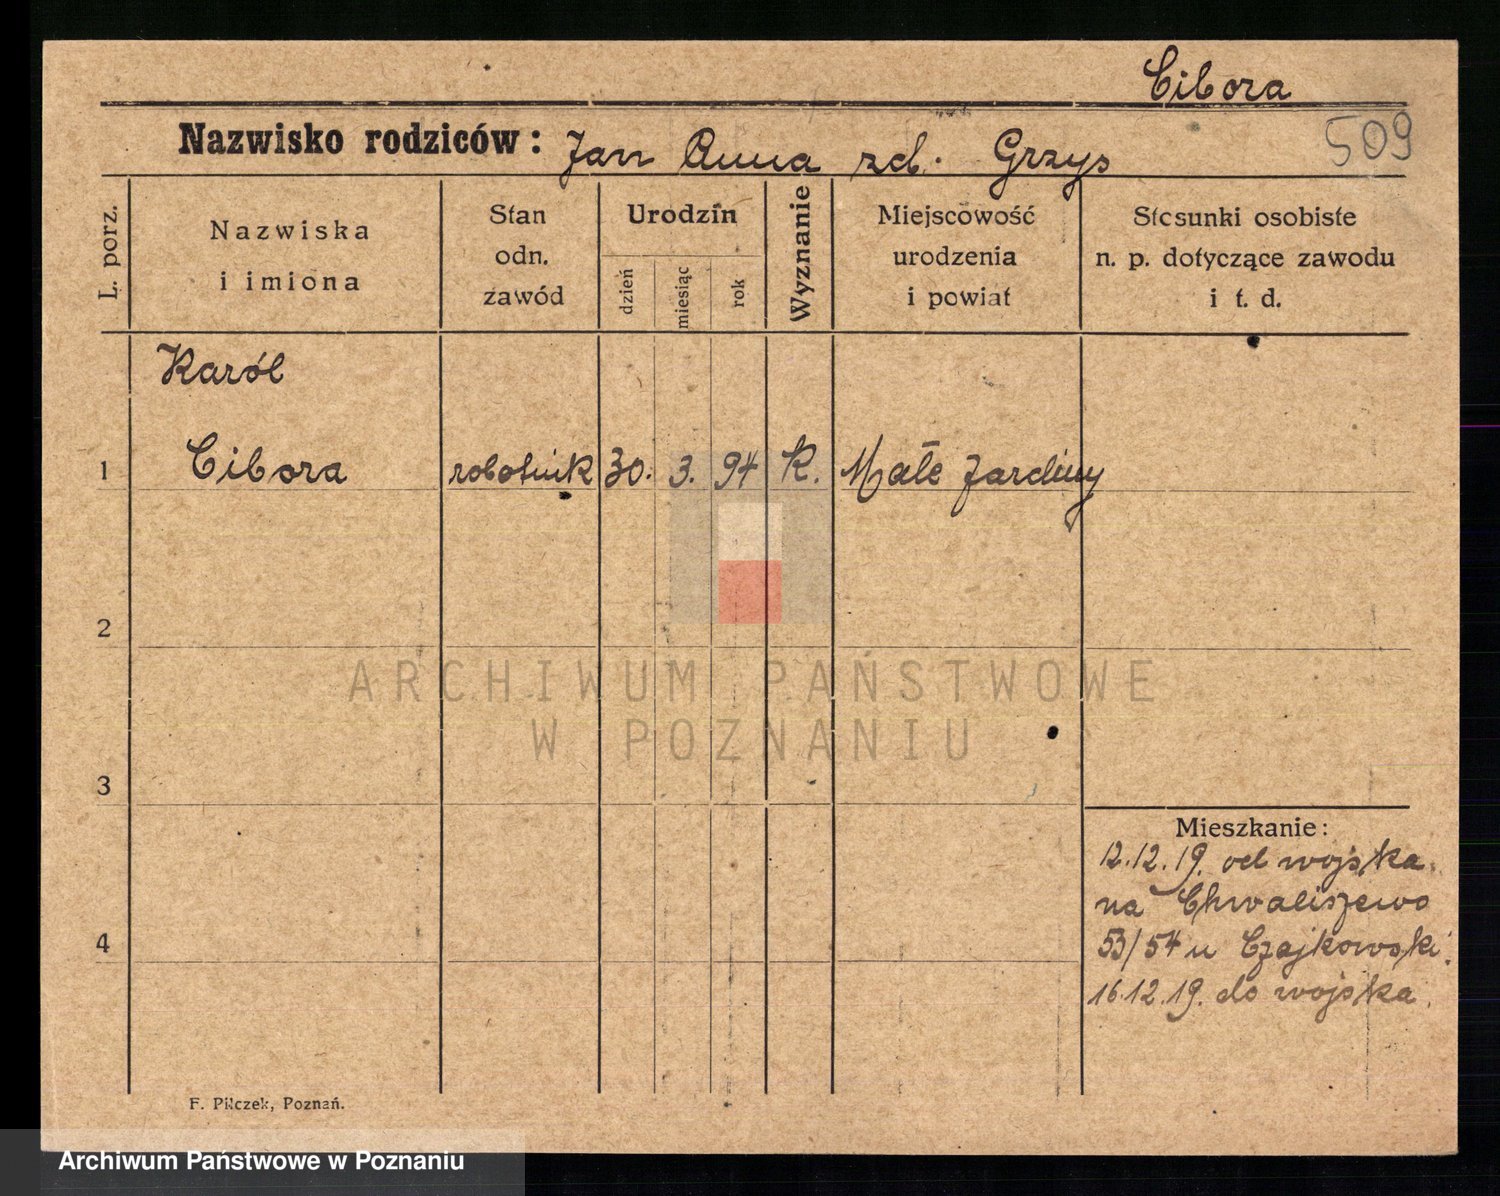 Cibora
Nazwisko rodziców: Jan Anna zd. Grzys
509
L. porz.
Nazwiska
i imiona
Stan
odn.
zawód
Urodzin
dzień
miesiąc
rok
Wyznanie
Miejscowość
urodzenia
i powiat
Stosunki osobiste
n. p. dotyczące zawodu
i t. d.
Karól
1 Cibora robotnik 30. 3. 94 K. Małe Jardiny
2
3
4
Mieszkanie:
12.12.19. od wojska
na Chwaliszewo
53/54 u Czajkowski.
16.12.19. do wojska.
F. Pilczek, Poznań.
ARCHIWUM PAŃSTWOWE
W POZNANIU
Archiwum Państwowe w Poznaniu